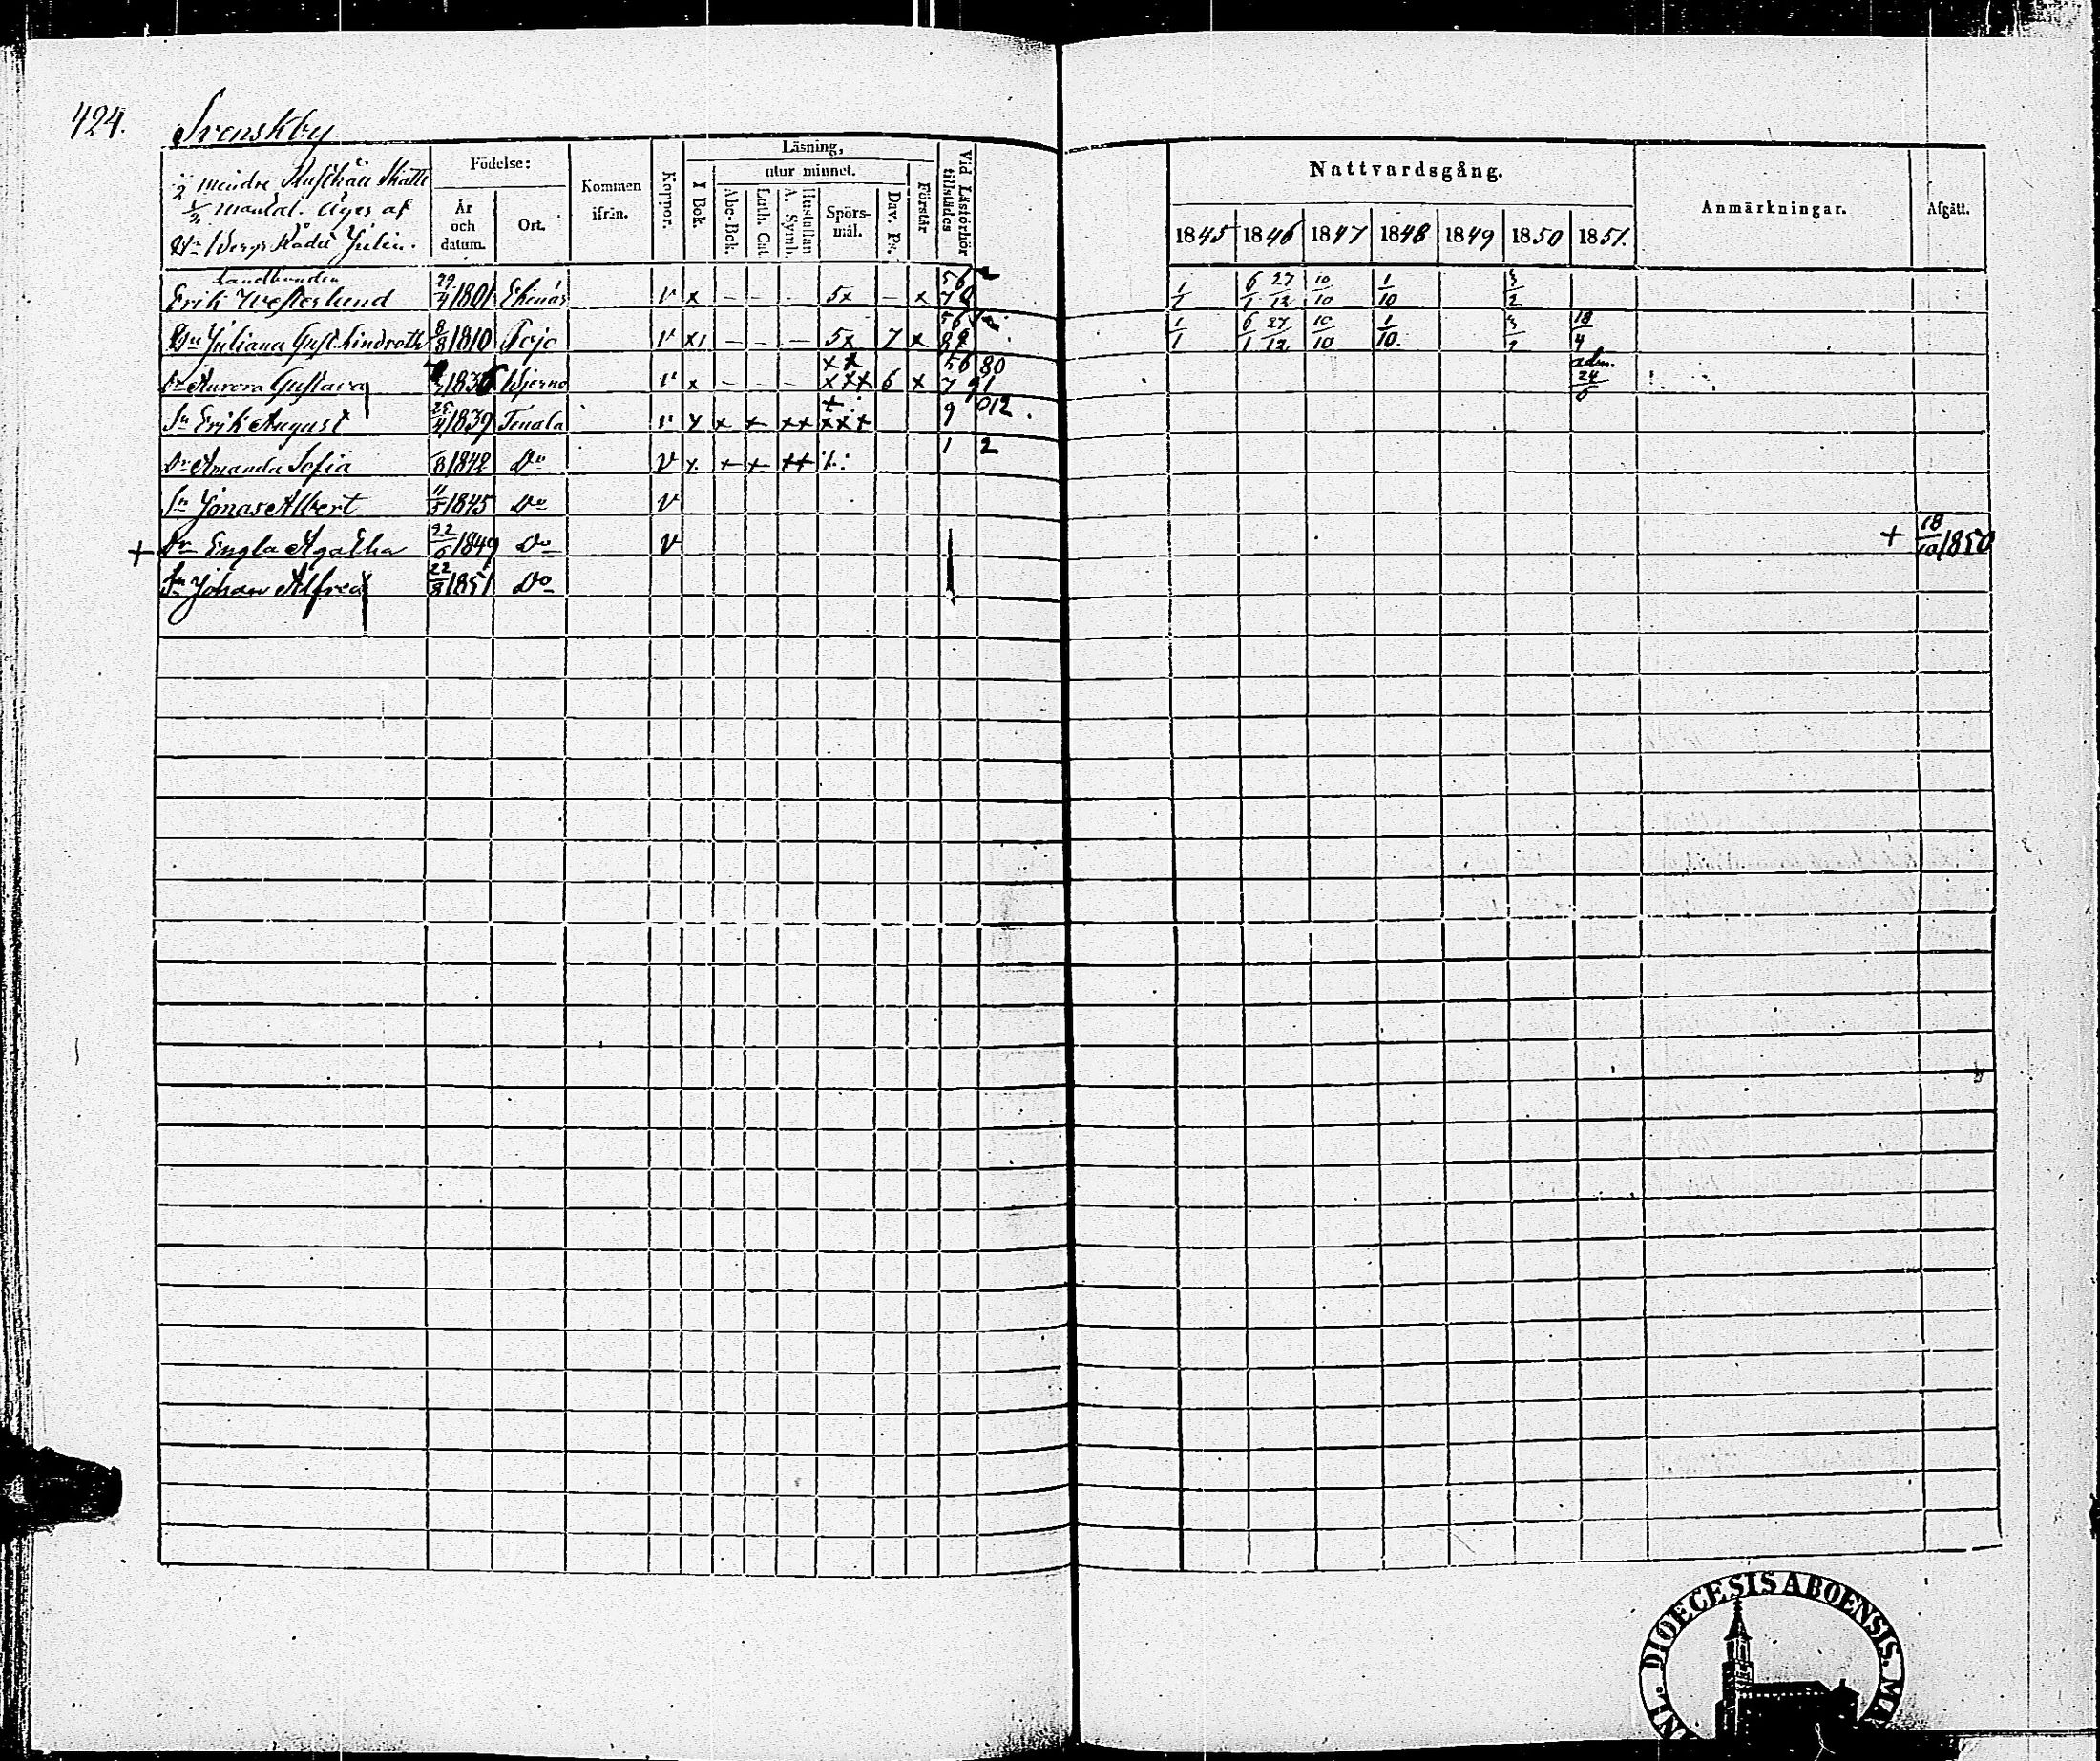 424. Svenskby
½ mindre Rusthåll Skatte
⅓ mantal. Äges af
Hr Bergs Rådet Julin.
Födelse:
År och datum.
Ort.
Kommen ifrån.
Koppor.
Läsning,
I Bok.
utur minnet.
Abc-Bok.
Luth. Cat.
Hustaflan A. Symb.
Spörsmål.
Dav. Ps.
Förstår
Vid Läsförhör tillstädes
Nattvardsgång.
1845 1846 1847 1848 1849 1850 1851.
Anmärkningar.
Afgått.
Landbonden
Erik Westerlund 29/4 1801 Ekenäs v x – – – 5x – x 56 7 1/1 6/1 27/12 10/10 1/10 3/2
Hu Juliana Gust. Lindroth 8/8 1810 Pojo v x – – – 5x 7 x 56 89 1/1 6/1 27/12 10/10 1/10. 18/4
Dr Aurora Gustava 1836 Bjerno v x – – – xx xxx 6 x 56 80 7 91 adm. 24/6
Sn Erik August 25/4 1839 Tenala v x x x xx + xxx 9 012.
Dr Amanda Sofia /8 1842 Do v x x x xx 1 2
Sn Jonas Albert 11/5 1845 Do v
+ Dr Engla Agatha 22/6 1849 Do v + 18/10 1850
Sn Johan Alfred 22/8 1851 Do
DIOECESIS ABOENSIS.